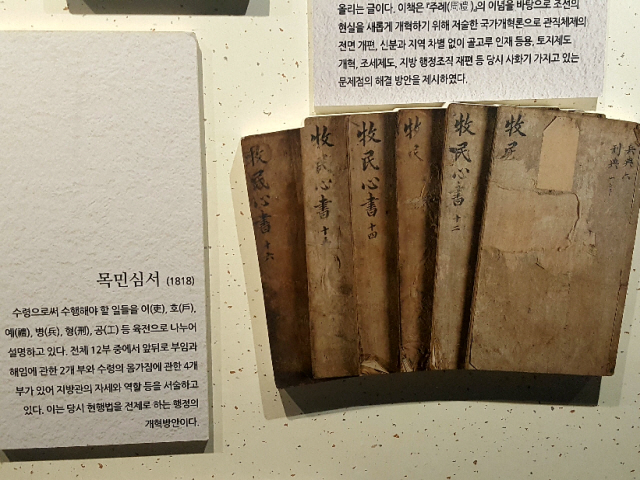 올리는 글이다. 이책은 『주례(周禮)』의 이념을 바탕으로 조선의
현실을 새롭게 개혁하기 위해 저술한 국가개혁론으로 관직체제의
전면 개편, 신분과 지역 차별 없이 골고루 인재 등용, 토지제도
개혁, 조세제도, 지방 행정조직 재편 등 당시 사회가 가지고 있는
문제점의 해결 방안을 제시하였다.
목민심서 (1818)
수령으로써 수행해야 할 일들을 이(吏), 호(戶),
예(禮), 병(兵), 형(刑), 공(工) 등 육전으로 나누어
설명하고 있다. 전체 12부 중에서 앞뒤로 부임과
해임에 관한 2개 부와 수령의 몸가짐에 관한 4개
부가 있어 지방관의 자세와 역할 등을 서술하고
있다. 이는 당시 현행법을 전제로 하는 행정의
개혁방안이다.
牧民心書 十六
牧民心書 十五
牧民心書 十四
牧民
牧民心書 十二
牧民
兵典 六
刑典 一